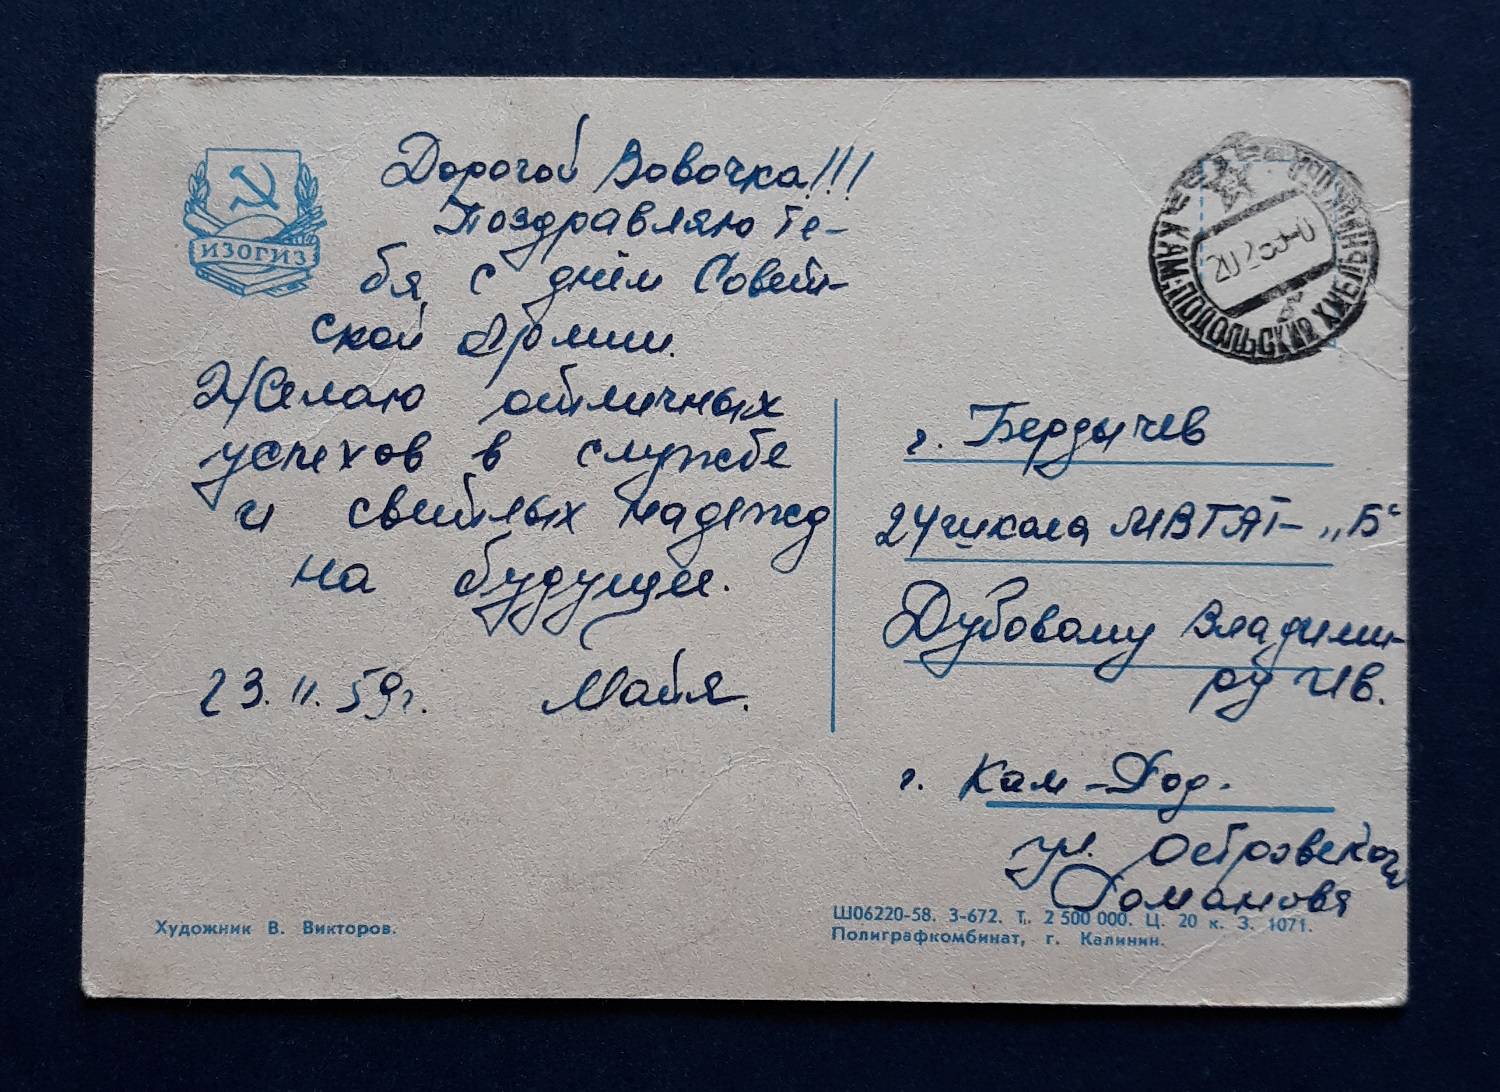 ИЗОГИЗ
Дорогой Вовочка!!!
Поздравляю те-
бя с днём Совет-
ской Армии.
Желаю отличных
успехов в службе
и светлых надежд
на будущее.
23.II.59г. Майя.
КАМ.-ПОДОЛЬСКИЙ ХМЕЛЬНИЦ
г. Бердычев
24 школа „Б“
Дубовому Владими-
ру
г. Кам-Под.
ул. Островского
Романова
Художник В. Викторов.
Ш06220-58. З-672. Т. 2 500 000. Ц. 20 к. З. 1071.
Полиграфкомбинат, г. Калинин.